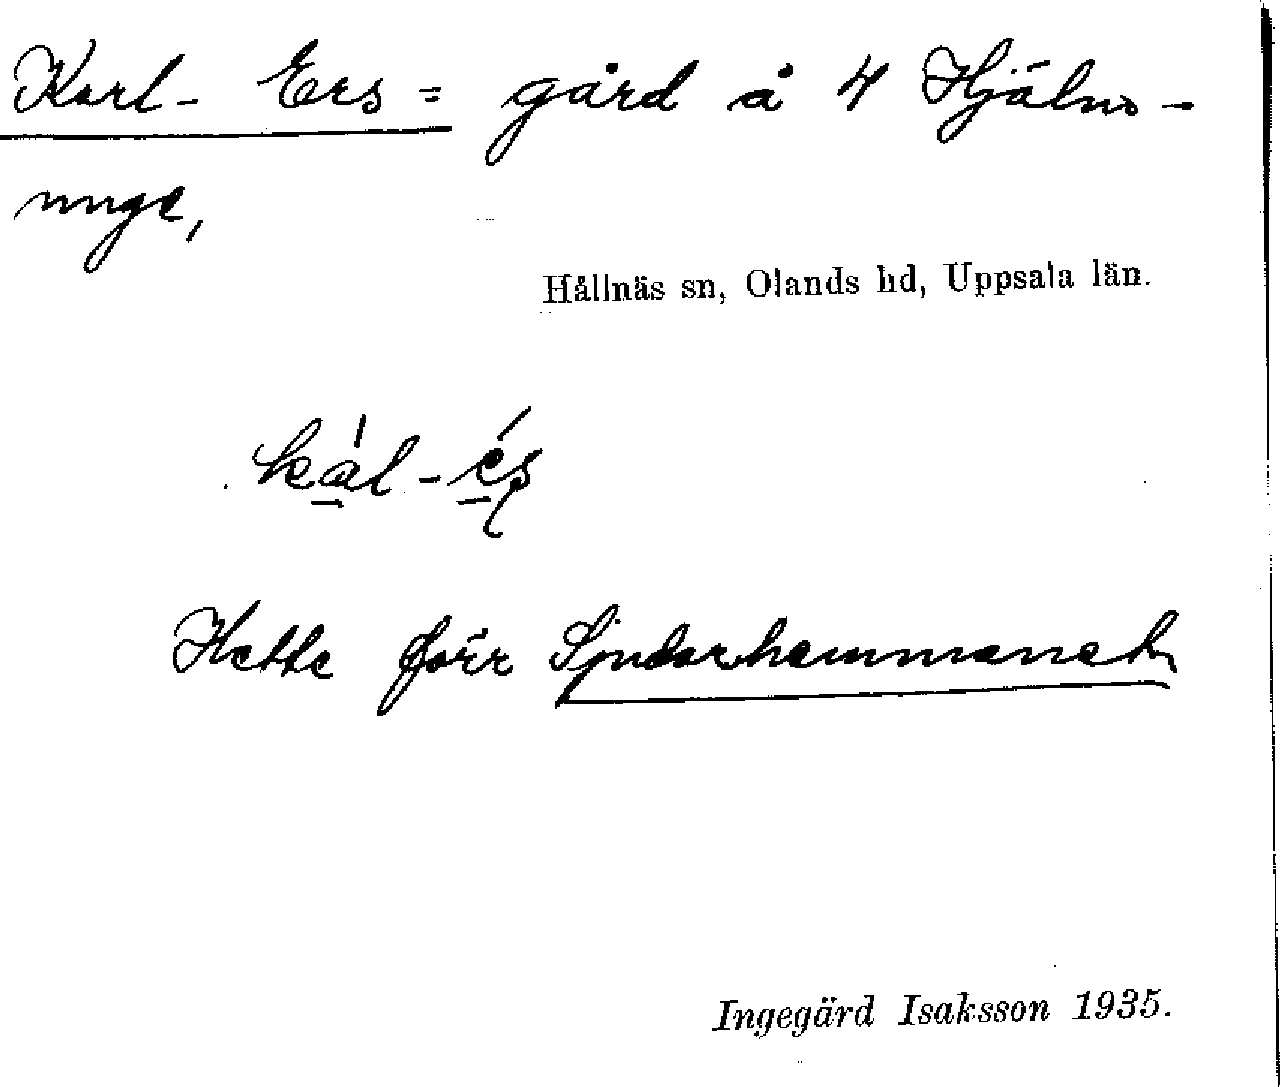 Karl-Ers= gård å 4 Hjälm-
unge,
Hållnäs sn, Olands hd, Uppsala län.
kál-és
Hette förr
Ingegärd Isaksson 1935.